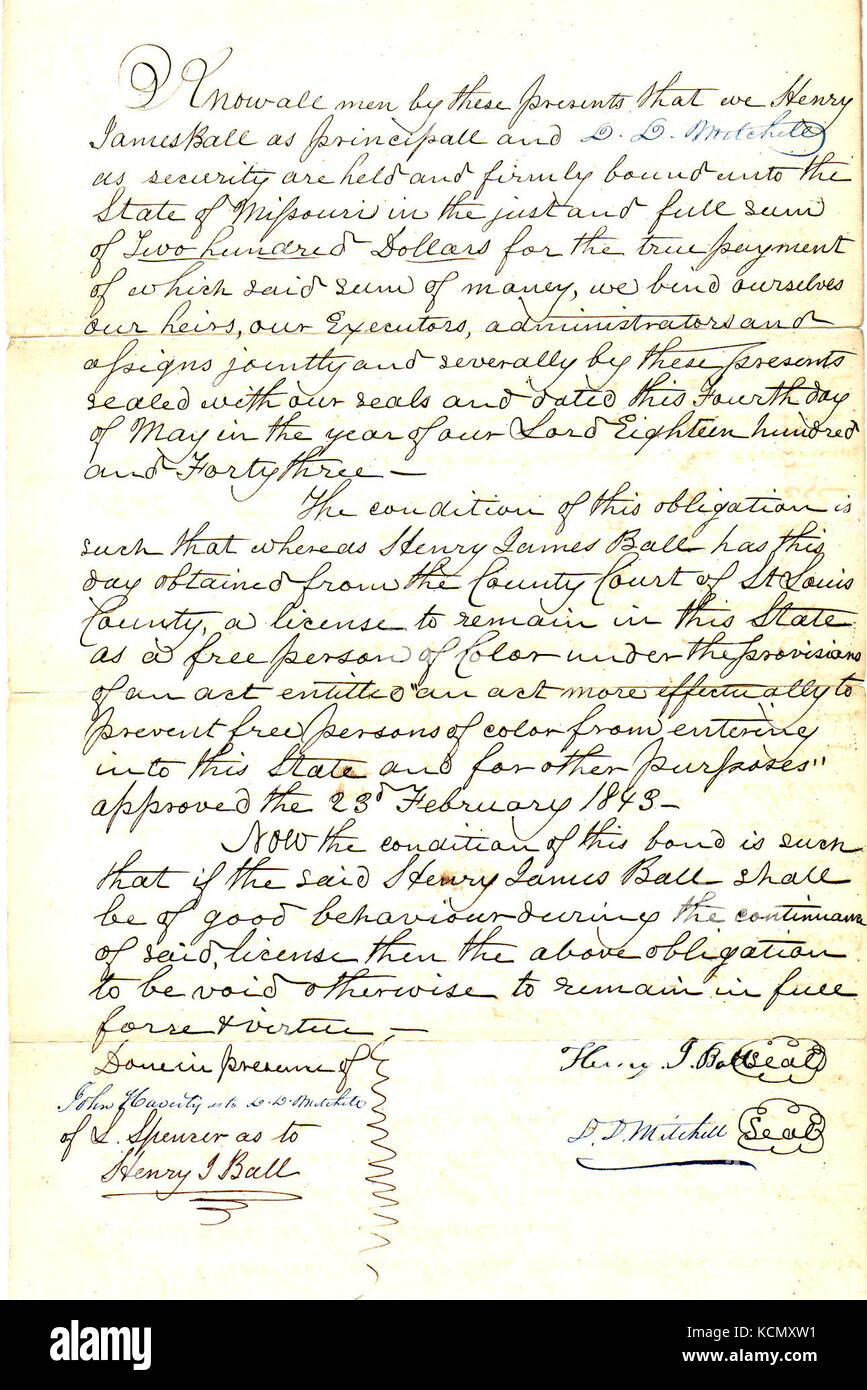 Know all men by these presents that we Henry
James Ball as principall and D. D. Mitchell
as security are held and firmly bound unto the
State of Missouri in the just and full sum
of Two hundred Dollars for the true payment
of which said sum of money, we bind ourselves
our heirs, our Executors, administrators and
assigns jointly and severally by these presents
sealed with our seals and dated this Fourth day
of May in the year of our Lord Eighteen hundred
and Forty three —
The condition of this obligation is
such that whereas Henry James Ball has this
day obtained from the County Court of St Louis
County, a license to remain in this State
as a free person of Color under the provisions
of an act entitled "an act more effectually to
prevent free persons of color from entering
into this State and for other purposes"
approved the 23d February 1843 —
Now the condition of this bond is such
that if the said Henry James Ball shall
be of good behaviour during the continuance
of said license then the above obligation
to be void otherwise to remain in full
forse & virtue —
Done in presence of
Henry J. Ball Seal
John Haverty as to D. D. Mitchell
of L. Spencer as to
D. D. Mitchell Seal
Henry J Ball
alamy
Image ID: KCMXW1
www.alamy.com